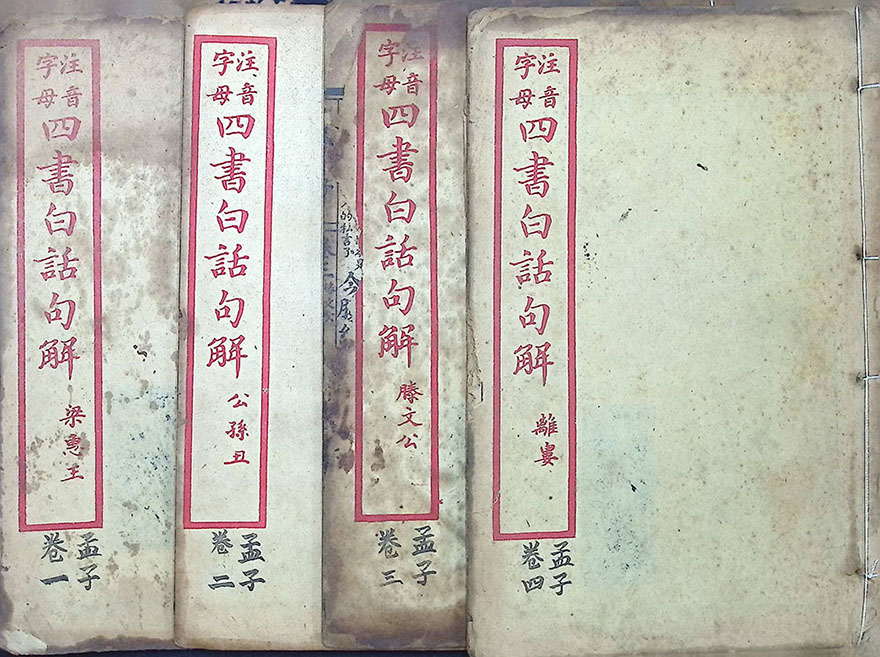 注音
字母
四書白話句解
梁惠王
孟子
卷一
注音
字母
四書白話句解
公孫丑
孟子
卷二
注音
字母
四書白話句解
滕文公
孟子
卷三
注音
字母
四書白話句解
離婁
孟子
卷四